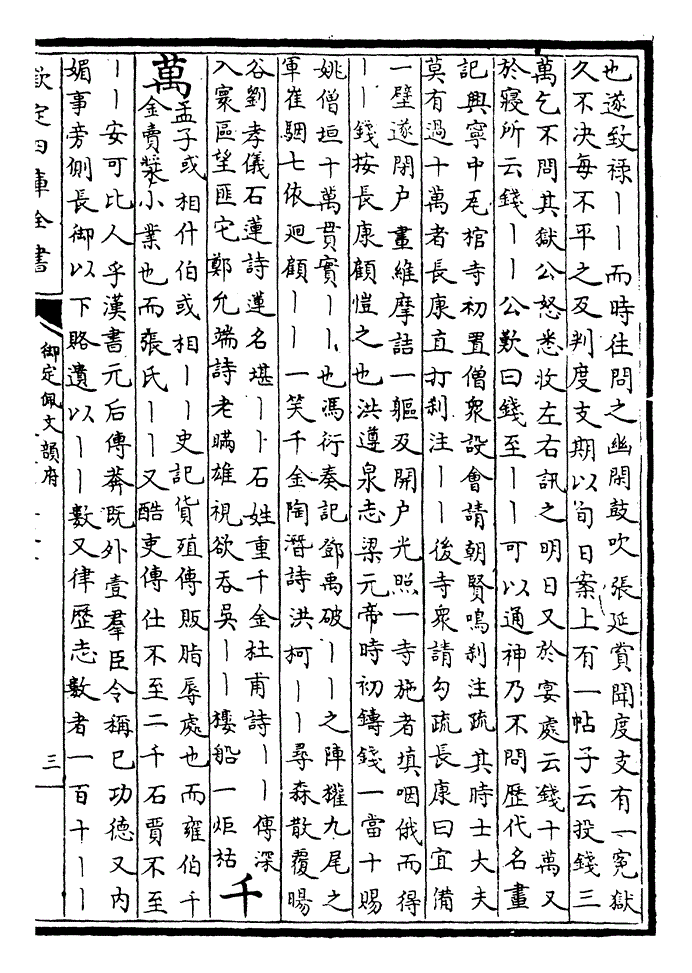 也遂致祿丨丨而時往問之幽閒鼓吹張延賞聞度支有一冤獄
久不決每不平之及判度支期以旬日案上有一帖子云投錢三
萬乞不問其獄公怒悉收左右訊之明日又於宴處云錢十萬又
於寢所云錢丨丨公歎曰錢至丨丨可以通神乃不問歷代名畫
記興寧中瓦棺寺初置僧衆設會請朝賢鳴刹注疏其時士大夫
莫有過十萬者長康直打刹注丨丨後寺衆請勾疏長康曰宜備
一壁遂閉户畫維摩詰一軀及開户光照一寺施者填咽俄而得
丨丨錢按長康顧愷之也洪遵泉志梁元帝時初鑄錢一當十賜
姚僧垣十萬貫實丨丨也馮衍奏記鄧禹破丨丨之陣摧九尾之
軍崔駰七依迴顧丨丨一笑千金陶潛詩洪柯丨丨尋森散覆暘
谷劉孝儀石蓮詩蓮名堪丨卜石姓重千金杜甫詩丨丨傳深
入寰區望匪它鄭允端詩老瞞雄視欲吞吳丨丨樓船一炬枯
千
萬
孟子或相什伯或相丨丨史記貨殖傳販脂辱處也而雍伯千
金賣漿小業也而張氏丨丨又酷吏傳仕不至二千石賈不至
丨丨安可比人乎漢書元后傳莽既外壹羣臣令稱已功德又内
媚事旁側長御以下賂遺以丨丨數又律歷志數者一百十丨丨
欽定四庫全書
御定佩文韻府
三